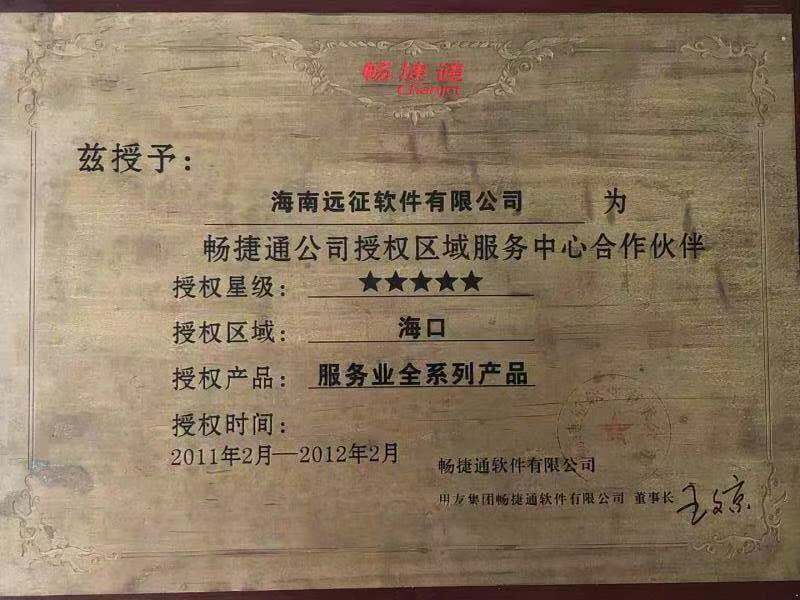 畅捷通
Chanjet
兹授予：
海南远征软件有限公司 为
畅捷通公司授权区域服务中心合作伙伴
授权星级：★★★★★
授权区域：海口
授权产品：服务业全系列产品
授权时间：
2011年2月—2012年2月
畅捷通软件有限公司
用友集团畅捷通软件有限公司 董事长 王文京